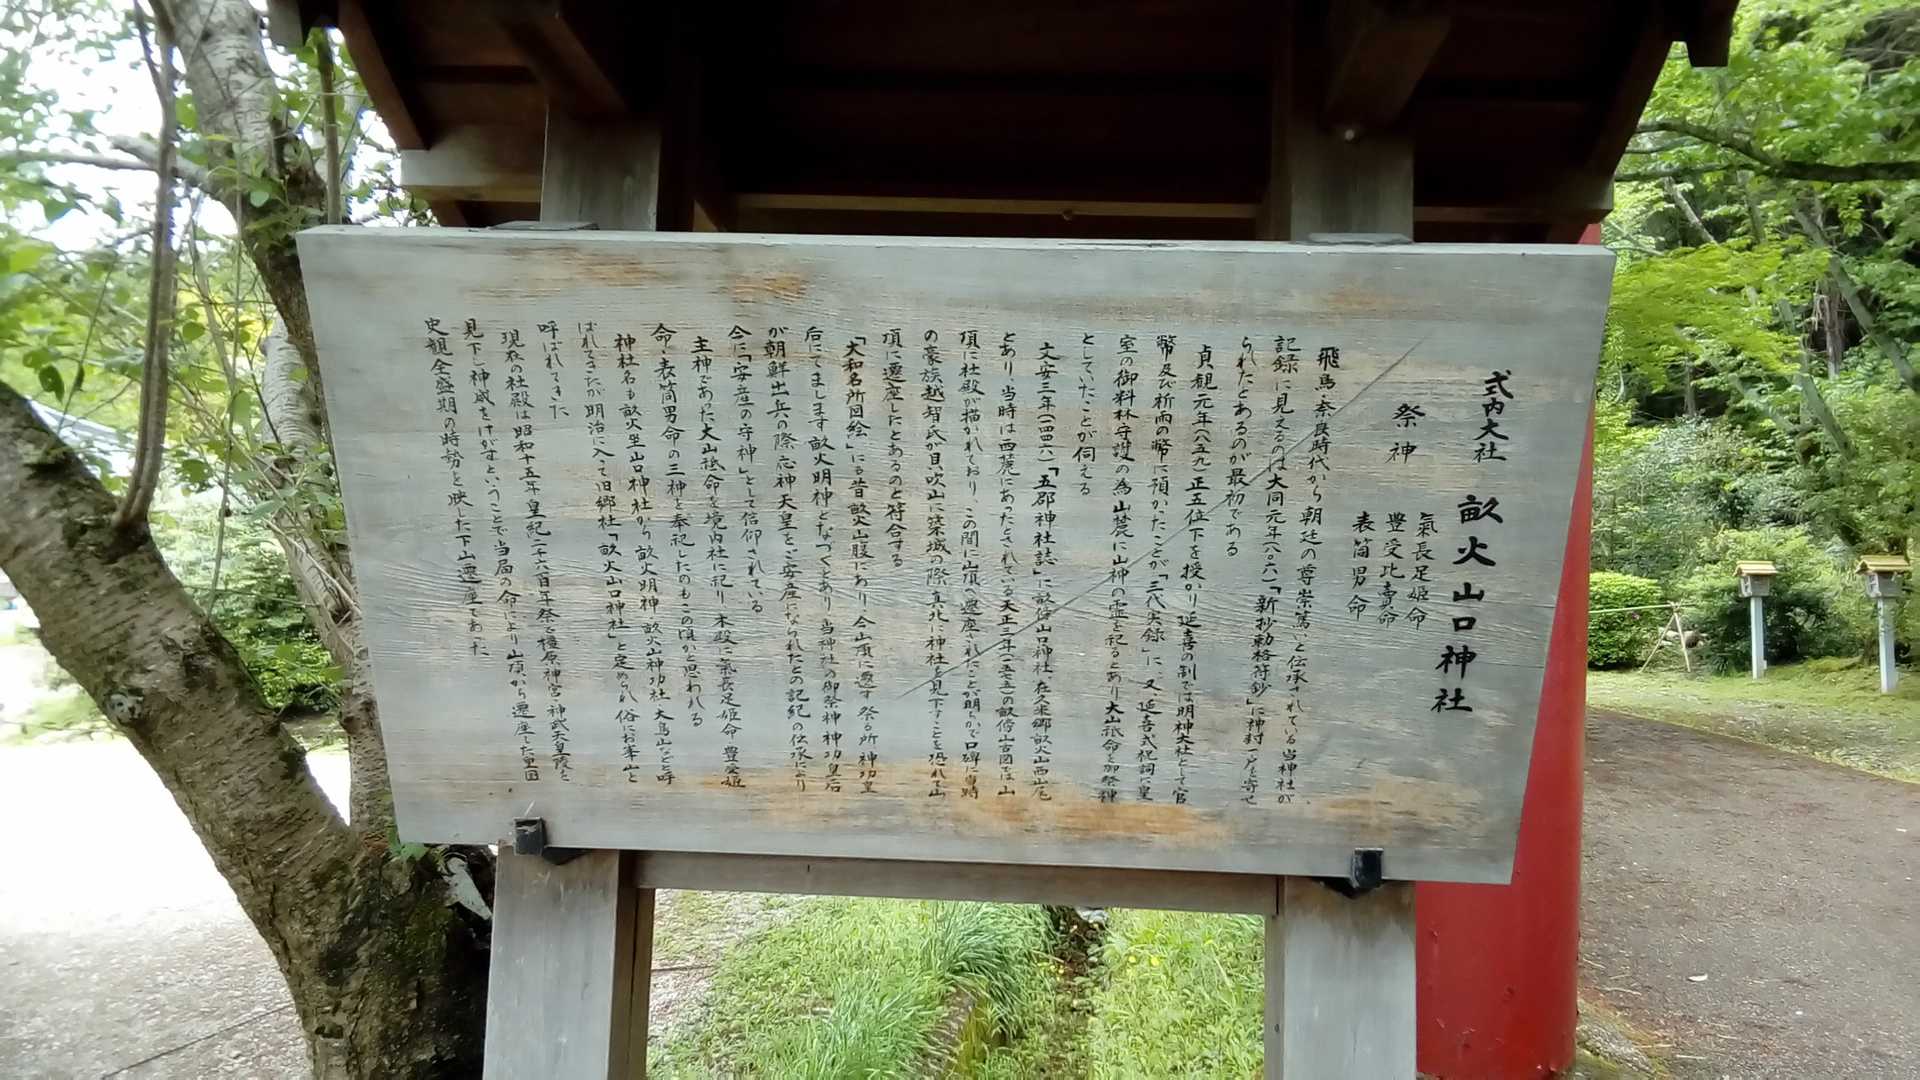 式内大社
畝火山口神社
祭神
氣長足姫命
豊受比売命
表筒男命
飛鳥・奈良時代から朝廷の尊崇篤いと伝承されている当神社が
記録に見えるのは大同元年(八〇六)「新抄勅格符鈔」に神封一戸を寄せ
られたとあるのが最初である
貞観元年(八五九)正五位下を授かり延喜の制では明神大社として官
幣及び祈雨の幣に預かったことが「三代実録」に、又延喜式祝詞に皇
室の御料林守護の為山麓に山神の霊を祀るとあり大山祇命を御祭神
としていたことが伺える
文安三年(一四四六)「五郡神社誌」に畝傍山口神社在久米郷畝火山西山尾
とあり、当時は西麓にあったとされている天正三年(一五七五)の畝傍山古図では山
頂に社殿が描かれており、この間に山頂へ遷座されたことが明らかで口碑に当時
の豪族越智氏が貝吹山に築城の際真北に神社を見下すことを恐れて山
頂に遷座したとあるのと符合する
「大和名所図絵」にも昔畝火山腹にあり今山頂に遷す祭る所神功皇
后にてまします畝火明神となづくとあり当神社の御祭神神功皇后
が朝鮮出兵の際応神天皇をご安産になられたとの記紀の伝承により
今に「安産の守神」として信仰されている
主神であった大山祇命を境内社に祀り本殿に氣長足姫命豊受姫
命・表筒男命の三神を奉祀したのもこの頃かと思われる
神社名も畝火坐山口神社から畝火明神畝火山神功社大鳥山などと呼
ばれてきたが明治に入って旧郷社「畝火山口神社」と定められ俗にお峯山と
呼ばれてきた
現在の社殿は昭和十五年皇紀二千六百年祭で橿原神宮神武天皇陵を
見下し神威をけがすということで当局の命により山頂から遷座した皇国
史観全盛期の時勢を映した下山遷座であった